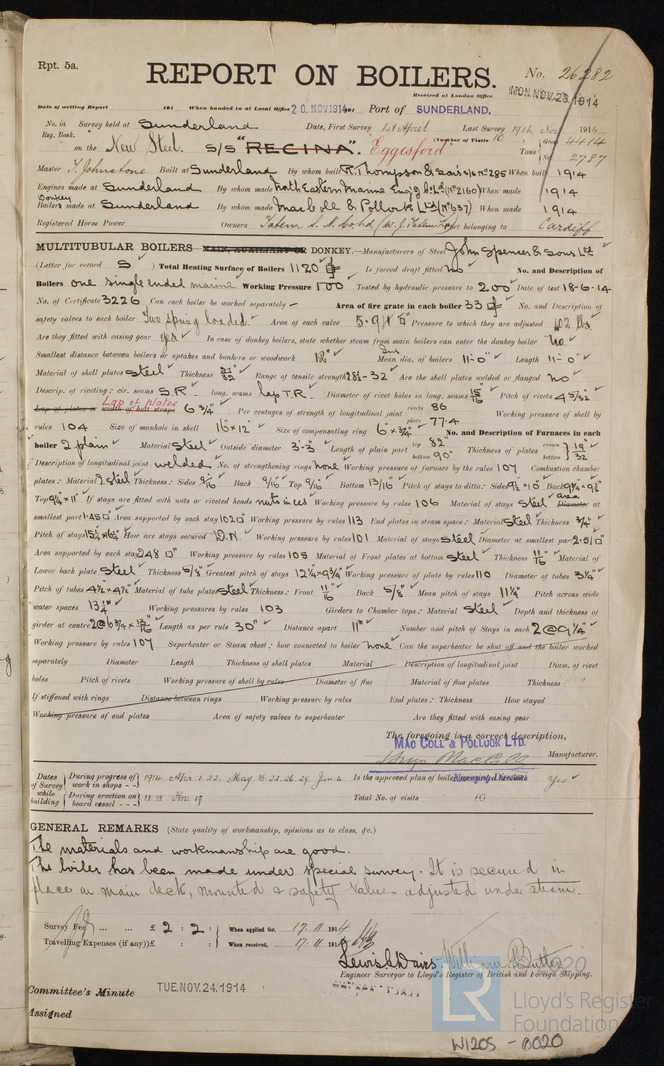 Rpt. 5a.
REPORT ON BOILERS.
No. 26282
Received at London Office MON. NOV. 23 1914
Date of writing Report 191 When handed in at Local Office 20. NOV. 1914 191 Port of SUNDERLAND.
No. in Reg. Book. Survey held at Sunderland Date, First Survey 1st April Last Survey 19th Nov 1914
(Number of Visits 16)
on the New Steel S/S "RECINA". Eggesford Tons Gross 4414 Net 2787
Master T. Johnstone Built at Sunderland By whom built R. Thompson & Sons Ld No 285 When built 1914
Engines made at Sunderland By whom made North Eastern Marine Eng'g Co Ld (No 2160) When made 1914
Donkey Boilers made at Sunderland By whom made MacColl & Pollock Ltd (No 637) When made 1914
Registered Horse Power Owners Tatem S. N. Co Ltd (W. J. Tatem Port belonging to Cardiff
MULTITUBULAR BOILERS MAIN, AUXILIARY OR DONKEY.—Manufacturers of Steel John Spencer & Sons Ltd
(Letter for record S) Total Heating Surface of Boilers 1120 Is forced draft fitted no No. and Description of
Boilers one single ended marine Working Pressure 100 Tested by hydraulic pressure to 200 Date of test 18-6-14
No. of Certificate 3226 Can each boiler be worked separately — Area of fire grate in each boiler 33 No. and Description of
safety valves to each boiler Two spring loaded Area of each valve 5.94 Pressure to which they are adjusted 102 lbs.
Are they fitted with easing gear yes In case of donkey boilers, state whether steam from main boilers can enter the donkey boiler no
Smallest distance between boilers or uptakes and bunkers or woodwork 18" Mean dia. of boilers 11-0" Length 11-0"
Material of shell plates steel Thickness 21/32 Range of tensile strength 28½-32 Are the shell plates welded or flanged no
Descrip. of riveting: cir. seams S.R. long. seams lap T.R. Diameter of rivet holes in long. seams 15/16 Pitch of rivets 4 5/32"
Lap of plates
Lap of plates or width of butt straps 6¾" Per centages of strength of longitudinal joint rivets 86 plate 77.4 Working pressure of shell by
rules 104 Size of manhole in shell 16"x12" Size of compensating ring 6"x¾" No. and Description of Furnaces in each
boiler 2 plain Material steel Outside diameter 3'-3" Length of plain part top 82" bottom 90" Thickness of plates crown bottom 19/32
Description of longitudinal joint welded No. of strengthening rings none Working pressure of furnace by the rules 107 Combustion chamber
plates: Material steel Thickness: Sides 9/16 Back 9/16 Top 9/16 Bottom 13/16 Pitch of stays to ditto: Sides 9½"x10" Back 9¼"x9½"
Top 9¼"x11" If stays are fitted with nuts or riveted heads nuts in ccs Working pressure by rules 106 Material of stays steel Diameter area at
smallest part 1.45 Area supported by each stay 102 Working pressure by rules 113 End plates in steam space: Material steel Thickness ¾"
Pitch of stays 15½"x16½" How are stays secured D.N. Working pressure by rules 101 Material of stays steel Diameter at smallest part 2.5
Area supported by each stay 248 Working pressure by rules 105 Material of Front plates at bottom steel Thickness 11/16 Material of
Lower back plate steel Thickness 5/8 Greatest pitch of stays 12¼"x9¾" Working pressure of plate by rules 110 Diameter of tubes 3¼"
Pitch of tubes 4½"x4½" Material of tube plates steel Thickness: Front 11/16 Back 5/8" Mean pitch of stays 11¼" Pitch across wide
water spaces 13¼" Working pressures by rules 103 Girders to Chamber tops: Material steel Depth and thickness of
girder at centre 2@6¾"x13/16 Length as per rule 30" Distance apart 11" Number and pitch of Stays in each 2@9¼"
Working pressure by rules 107 Superheater or Steam chest; how connected to boiler none Can the superheater be shut off and the boiler worked
separately Diameter Length Thickness of shell plates Material Description of longitudinal joint Diam. of rivet
holes Pitch of rivets Working pressure of shell by rules Diameter of flue Material of flue plates Thickness
If stiffened with rings Distance between rings Working pressure by rules End plates: Thickness How stayed
Working pressure of end plates Area of safety valves to superheater Are they fitted with easing gear
The foregoing is a correct description,
MAC COLL & POLLOCK LTD.
Manufacturer.
Dates of Survey while building During progress of work in shops - - 1914 Apr. 1. 22. May. 16. 22. 26. 29. Jun 4. Is the approved plan of boiler forwarded herewith Yes
During erection on board vessel - - - 11. 18 Nov. 19 Total No. of visits 16
GENERAL REMARKS (State quality of workmanship, opinions as to class, &c.)
The materials and workmanship are good.
The boiler has been made under special survey. It is secured in
place on main deck, mounted & safety valves adjusted under steam.
Survey Fee ... ... £ 2 : 2 : When applied for, 17.11.1914
Travelling Expenses (if any) £ : : When received, 17.11.1914
Lewis C Davis William Butler
Engineer Surveyor to Lloyd's Register of British and Foreign Shipping.
Committee's Minute TUE. NOV. 24. 1914
Assigned
LR Lloyd's Register Foundation
W1205-0020